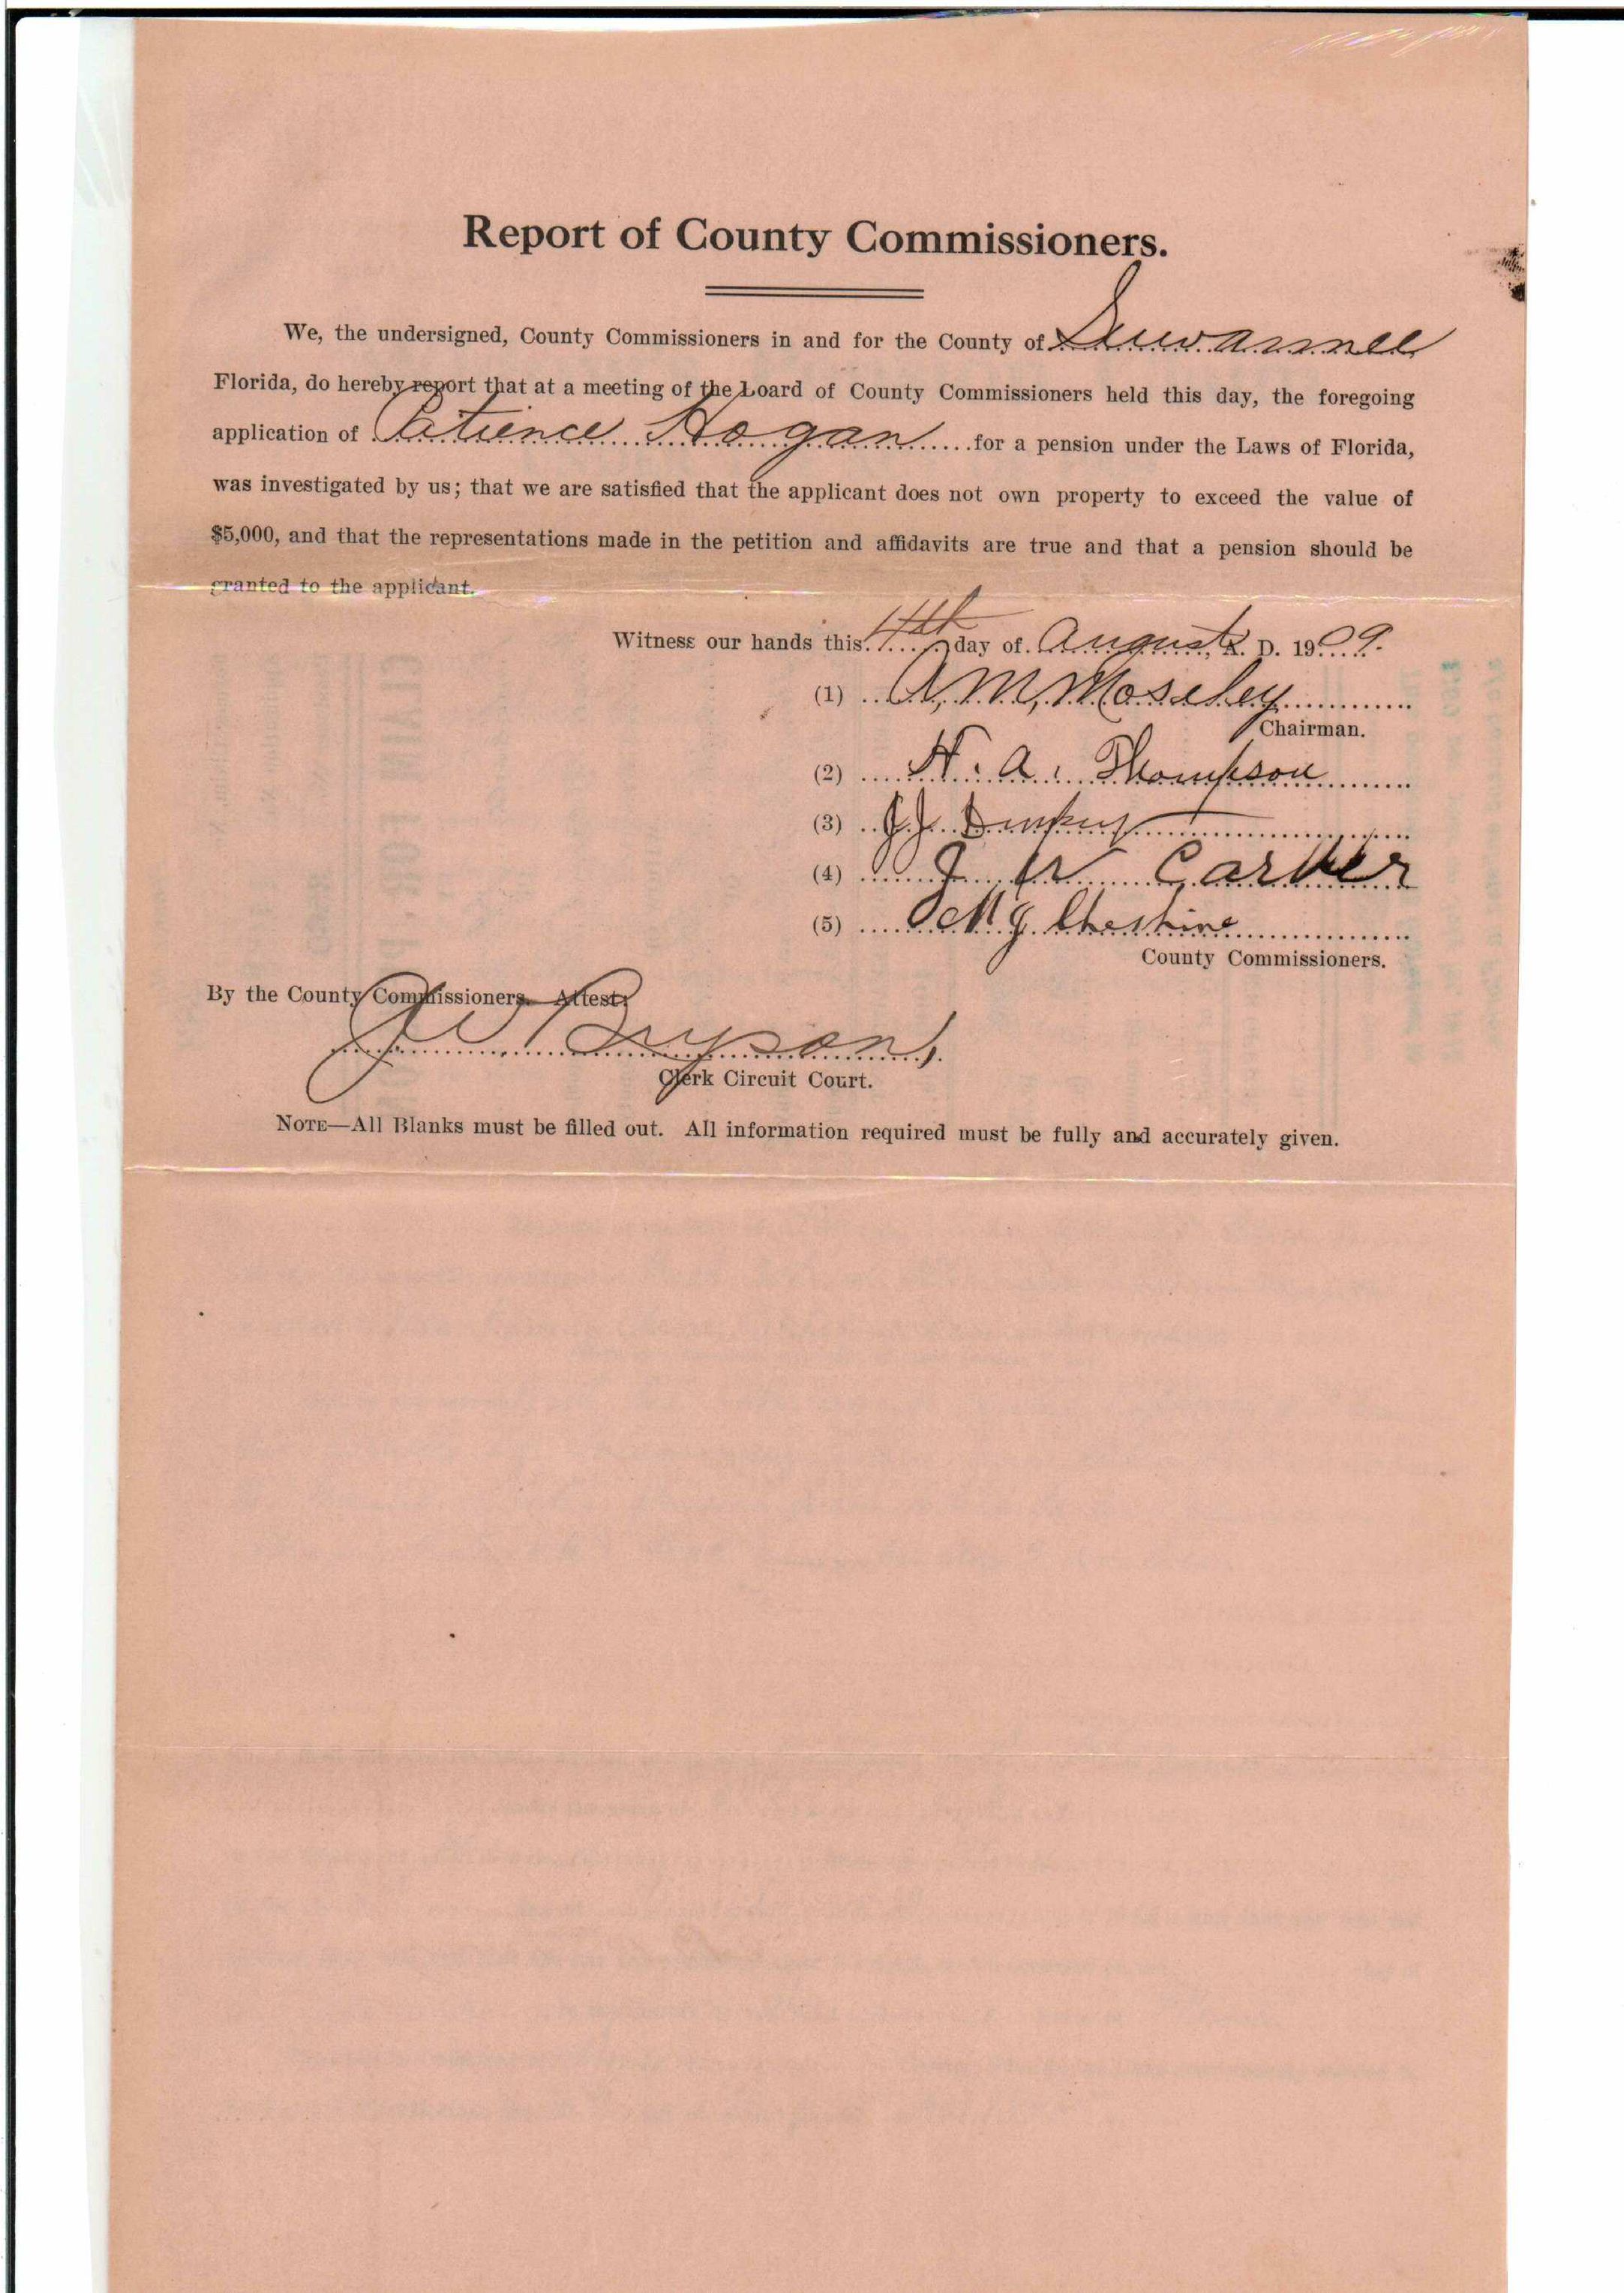 Report of County Commissioners.
We, the undersigned, County Commissioners in and for the County of Suwannee
Florida, do hereby report that at a meeting of the Board of County Commissioners held this day, the foregoing
application of Patience Hogan for a pension under the Laws of Florida,
was investigated by us; that we are satisfied that the applicant does not own property to exceed the value of
$5,000, and that the representations made in the petition and affidavits are true and that a pension should be
granted to the applicant.
Witness our hands this 4th day of August, A. D. 1909.
(1) A. M. Moseley
Chairman.
(2) H. A. Thompson
(3) J. J.
(4) J W Carver
(5) M J Cheshire
County Commissioners.
By the County Commissioners—Attest:
J W Bryson,
Clerk Circuit Court.
NOTE—All Blanks must be filled out. All information required must be fully and accurately given.